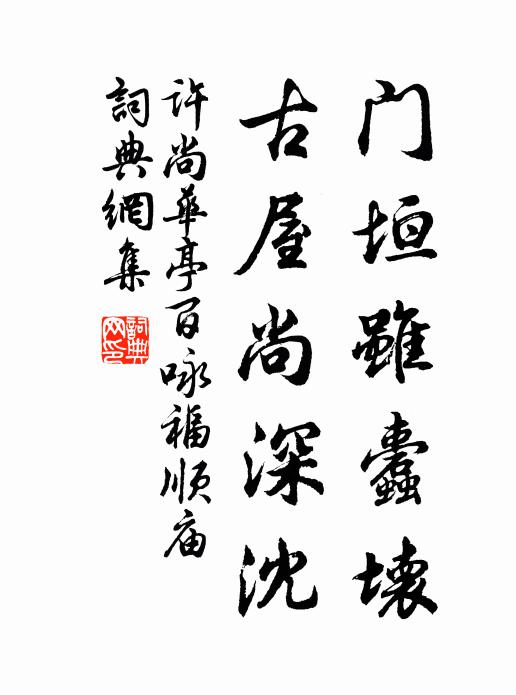 门垣雖蠹壞
古屋尚深沈
许尚華亭百咏福顺庙
詞典網集
詞典网印